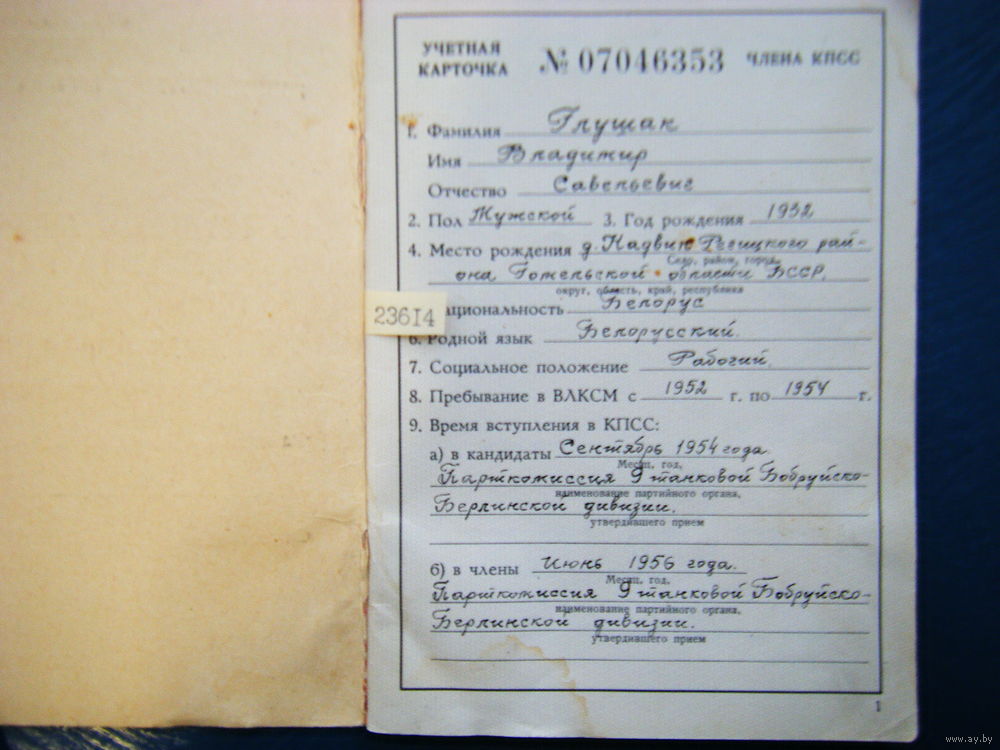 УЧЕТНАЯ КАРТОЧКА № 07046353 ЧЛЕНА КПСС
1. Фамилия Глушак
Имя Владимир
Отчество Савельевич
2. Пол Мужской 3. Год рождения 1932
4. Место рождения д. Речицкого рай-
Село, район, город,
она Гомельской области БССР.
округ, область, край, республика
ациональность Белорус
23614
6. Родной язык Белорусский.
7. Социальное положение Рабочий.
8. Пребывание в ВЛКСМ с 1952 г. по 1954 г.
9. Время вступления в КПСС:
а) в кандидаты Сентябрь 1954 года.
Месяц, год,
Парткомиссия 9 танковой Бобруйско-
наименование партийного органа,
Берлинской дивизии.
утвердившего прием
б) в члены Июнь 1956 года.
Месяц, год,
Парткомиссия 9 танковой Бобруйско-
наименование партийного органа,
Берлинской дивизии.
утвердившего прием
1
www.ay.by